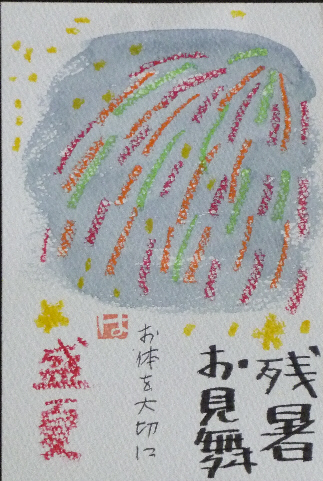 残暑
お見舞
お体を大切に
は
盛夏